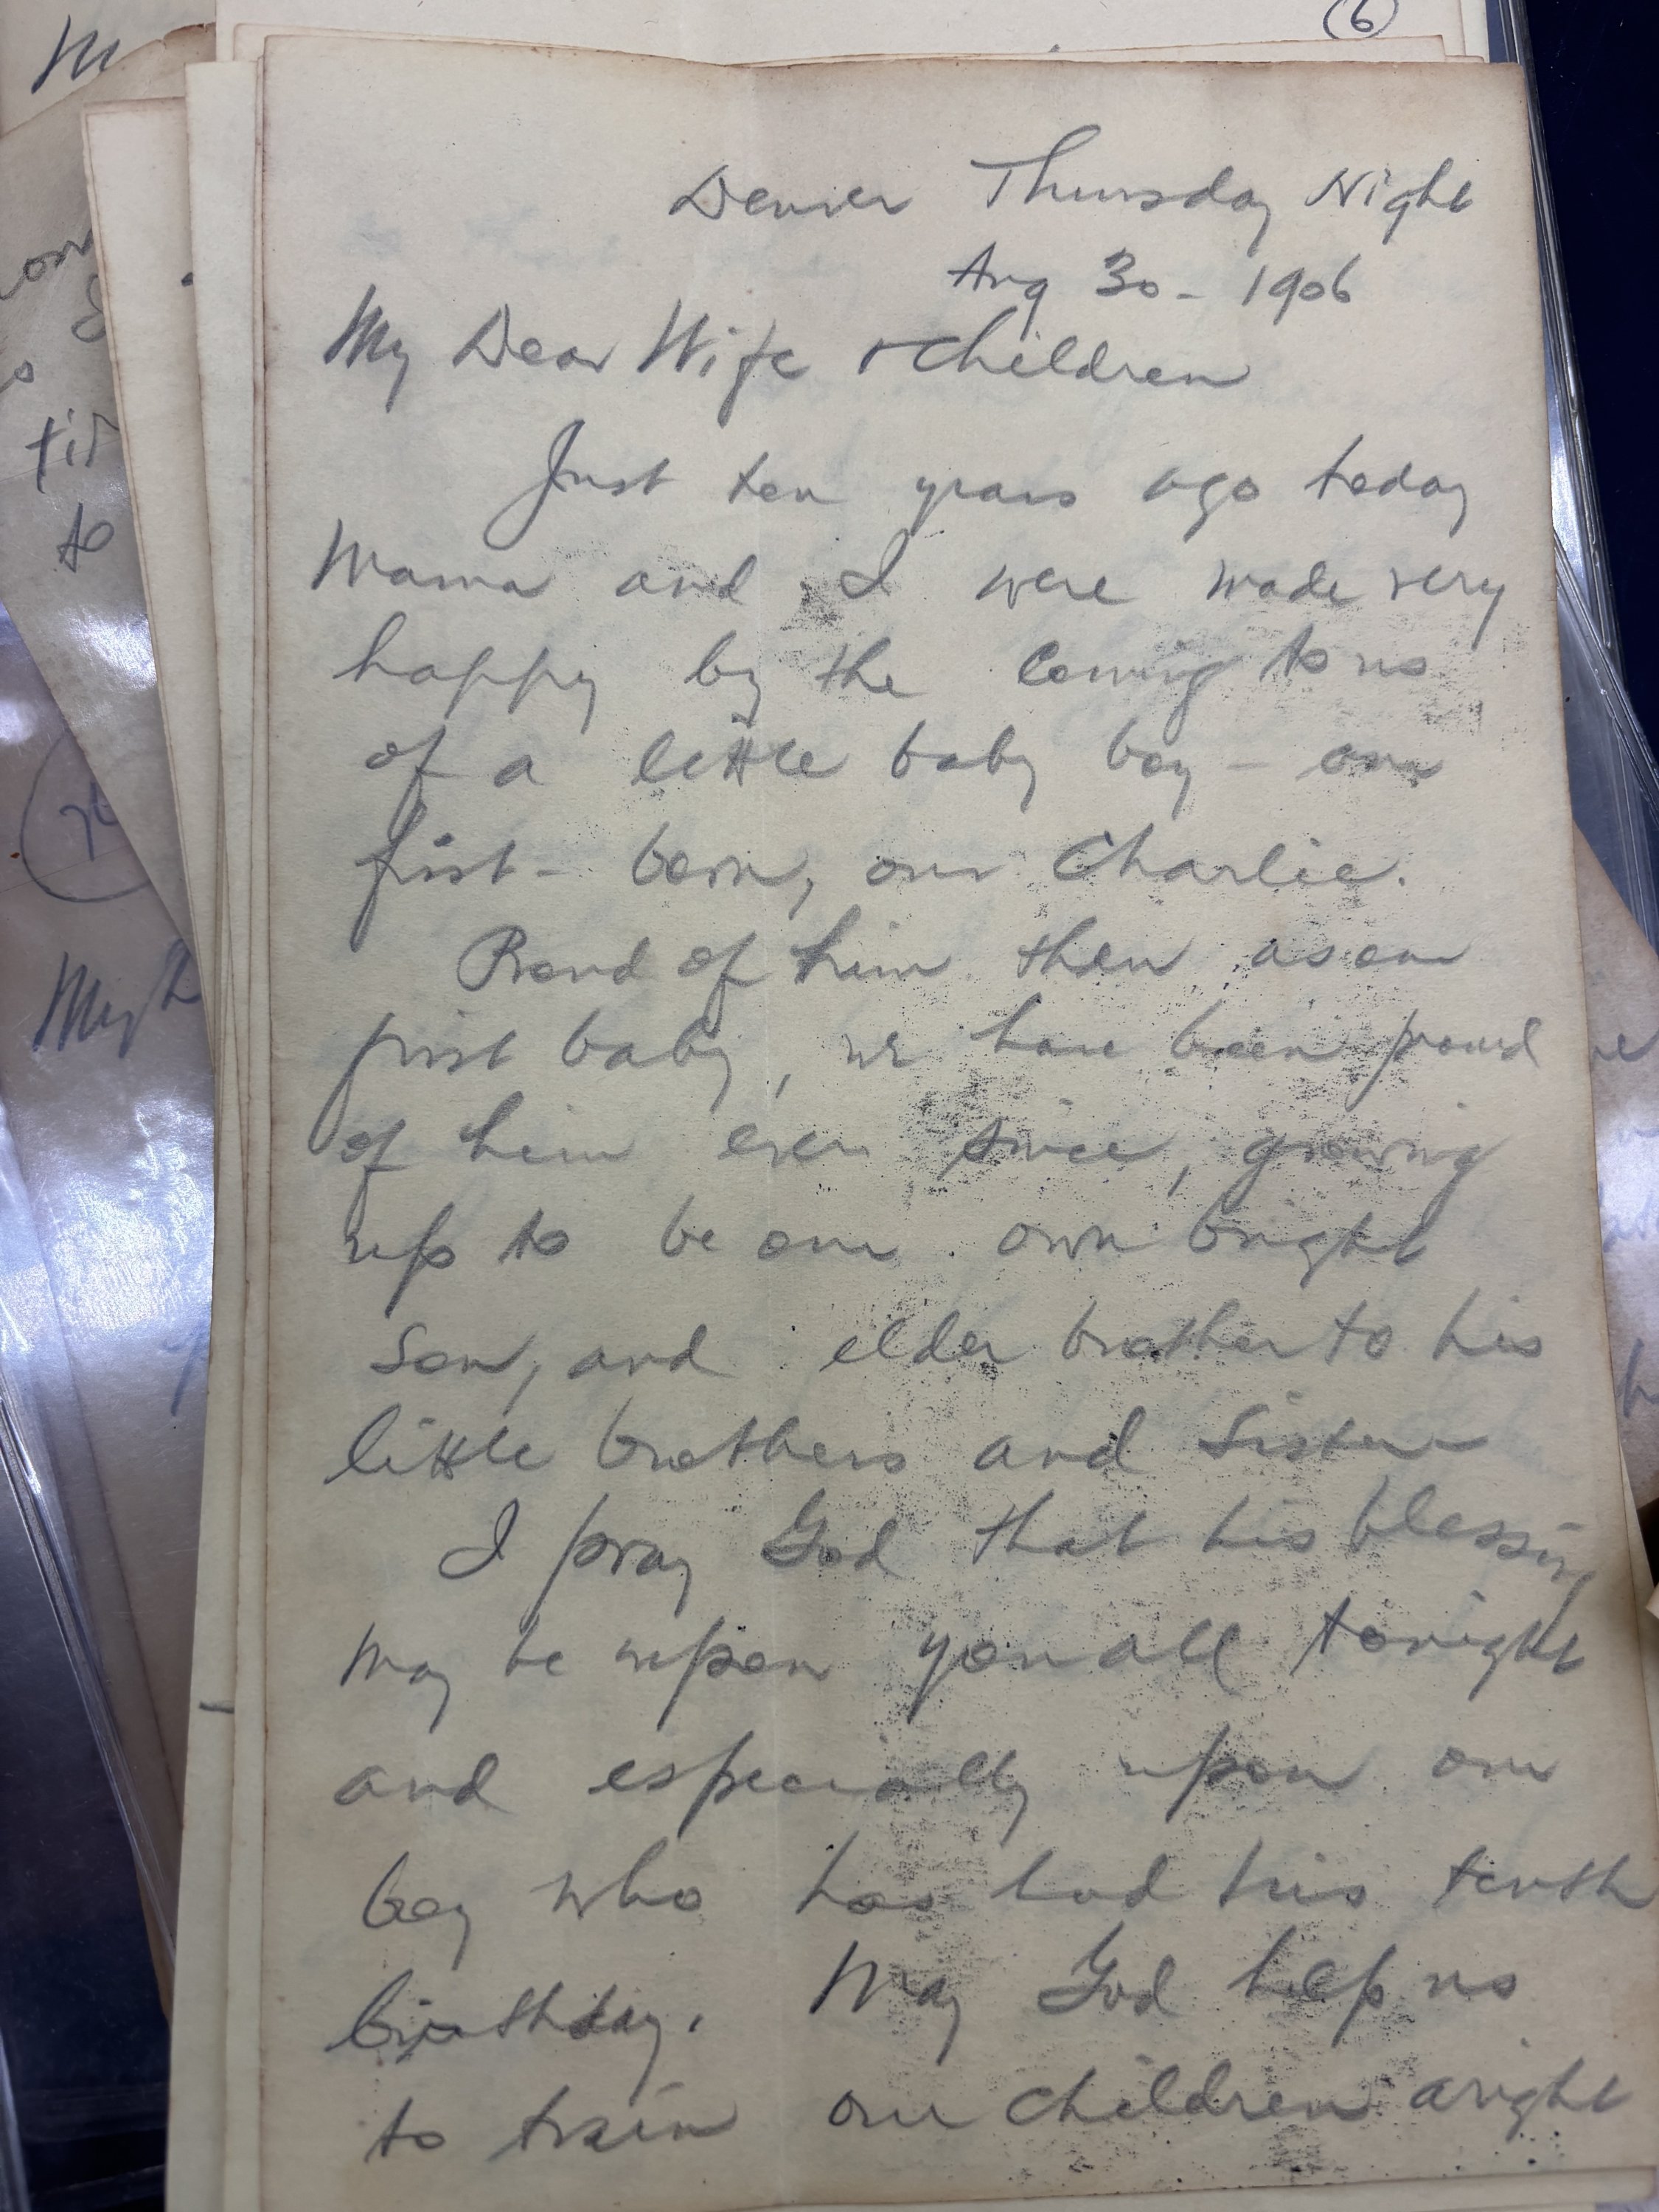 (6)
Denver Thursday Night
Aug 30 - 1906
My Dear Wife + Children
Just ten years ago today
Mama and I were made very
happy by the coming to us
of a little baby boy - our
first - born, our Charlie.
Proud of him then as our
first baby, we have been proud
of him ever since, growing
up to be our own bright
son, and elder brother to his
little brothers and sister -
I pray God that his blessing
may be upon you all tonight
and especially upon our
boy who has had his tenth
birthday. May God help us
to train our children aright